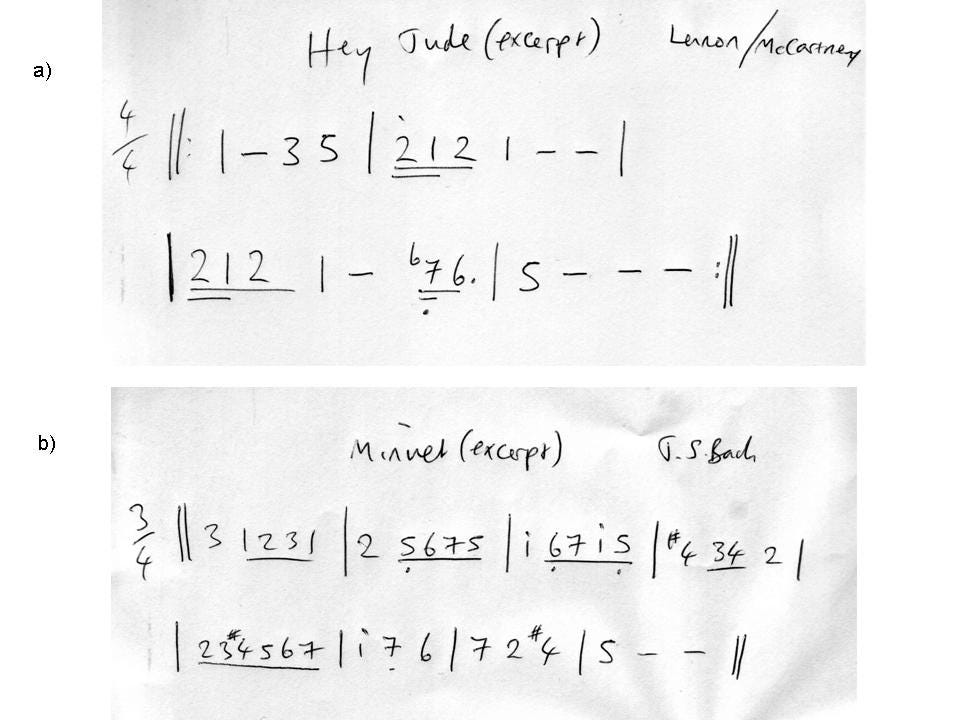 a)
Hey Jude (excerpt) Lennon/McCartney
4/4 ‖: 1 – 3 5 | 2̇ 1 2 1 – – |
| 2 1 2 1 – ♭7 6. | 5 – – – :‖
b)
Minuet (excerpt) J.S. Bach
3/4 ‖ 3 1 2 3 1 | 2 5̣ 6 7 5 | i 6̣ 7 i 5̣ | #4 3 4 2 |
| 2 3 #4 5 6 7 | i 7̣ 6 | 7 2 #4 | 5 – – ‖